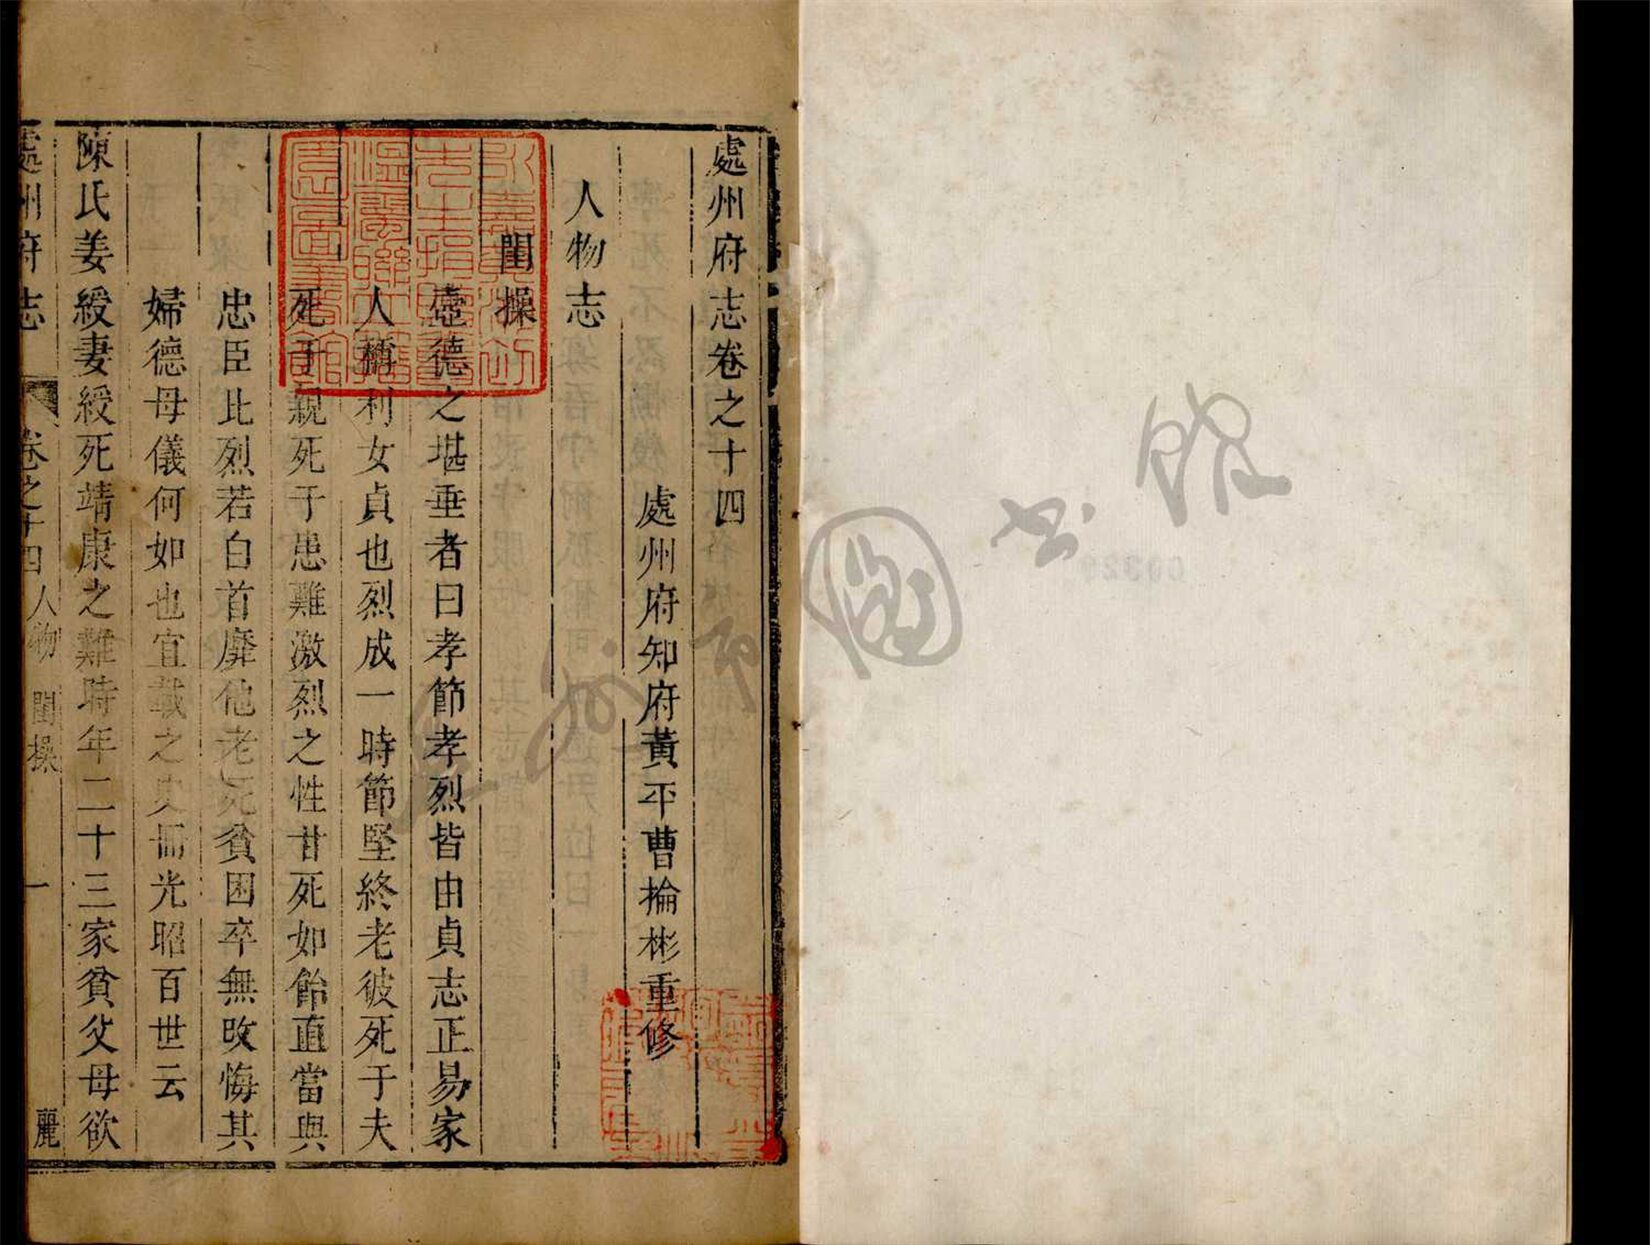 處州府志卷之十四
處州府知府黃平曹掄彬重修
人物志
閨操
壼德之堪垂者曰孝節孝烈皆由貞志正易家
人爻利女貞也烈成一時節堅終老彼死于夫
死于親死于患難激烈之性甘死如飴直當與
忠臣比烈若白首靡他老死貧困卒無改悔其
婦德母儀何如也宜載之史冊光昭百世云
陳氏姜綬妻綬死靖康之難時年二十三家貧父母欲
處州府志
卷之十四
人物
閨操
一
麗
圖書館